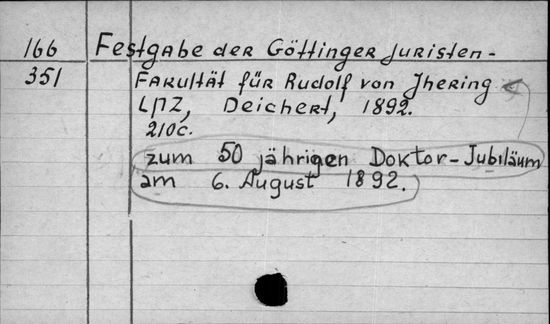 166 Festgabe der Göttinger Juristen-
351 Fakultät für Rudolf von Jhering
LPZ, Deichert, 1892.
210c.
zum 50 jährigen Doktor-Jubiläum
am 6. August 1892.